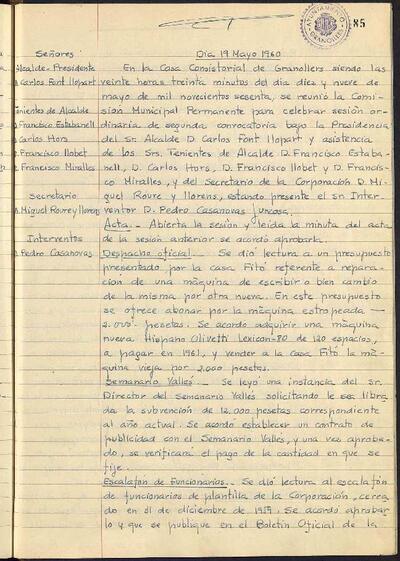 AYUNTAMIENTO
GRANOLLERS
85
Señores:
Alcalde-Presidente
D. Carlos Font llopart
Tenientes de Alcalde
D. Francisco Estabanell
D. Carlos Hors
D. Francisco llobet
D. Francisco Miralles
Secretario
D. Miguel Roure y llorens
Interventor
D. Pedro Casanovas
Dia 19 Mayo 1960
En la Casa Consistorial de Granollers siendo las
veinte horas treinta minutos del dia diez y nueve de
mayo de mil novecientos sesenta, se reunió la Comi-
sion Municipal Permanente para celebrar sesión or-
dinaria de segunda convocatoria bajo la Presidencia
del Sr. Alcalde D. Carlos Font llopart y asistencia
de los Srs. Tenientes de Alcalde D. Francisco Estaba-
nell, D. Carlos Hors, D. Francisco llobet y D. Francis-
co Miralles, y del Secretario de la Corporación D. Mi-
guel Roure y llorens, estando presente el Sr. Inter-
ventor D. Pedro Casanovas Juncosa.
Acta.- Abierta la sesión y leida la minuta del acta
de la sesión anterior se acordó aprobarla.
Despacho oficial.- Se dió lectura a un presupuesto
presentado por la casa Fitó referente a repara-
ción de una máquina de escribir o bien cambio
de la misma por otra nueva. En este presupuesto
se ofrece abonar por la máquina estropeada —
2.000'- pesetas. Se acordo adquirir una máquina
nueva Hispano Olivetti Lexicon-80 de 120 espacios,
a pagar en 1961, y vender a la casa Fitó la má-
quina vieja por 2.000 pesetas.
Semanario Vallés.- Se leyó una instancia del Sr.
Director del Semanario Vallés solicitando le sea libra-
da la subvención de 12.000 pesetas correspondiente
al año actual. Se acordó establecer un contrato de
publicidad con el Semanario Vallés, y una vez aproba-
do, se verificará el pago de la cantidad en que se
fije.
Escalafón de Funcionarios.- Se dió lectura al escalafón
de funcionarios de plantilla de la Corporación, cerra-
do en 31 de diciembre de 1959. Se acordó aprobar-
lo y que se publique en el Boletin Oficial de la